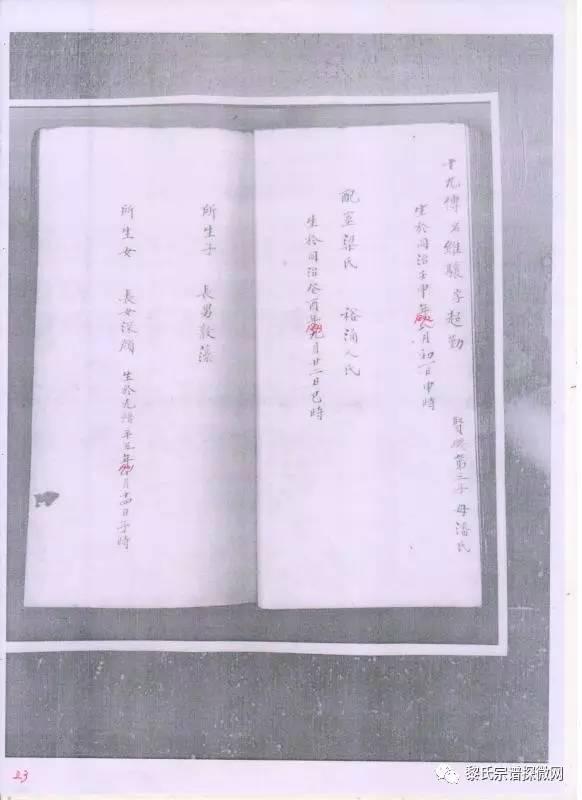 十九傳 名維驤 字超勤 賢 第三子 母潘氏
生於同治壬申年 月初一日申時
配室梁氏 裕涌人氏
生於同治癸酉年 九月廿二日巳時
所生子 長男敦藻
所生女 長女深顏 生於光緒 年 月十四日子時
23
黎氏宗谱探微网